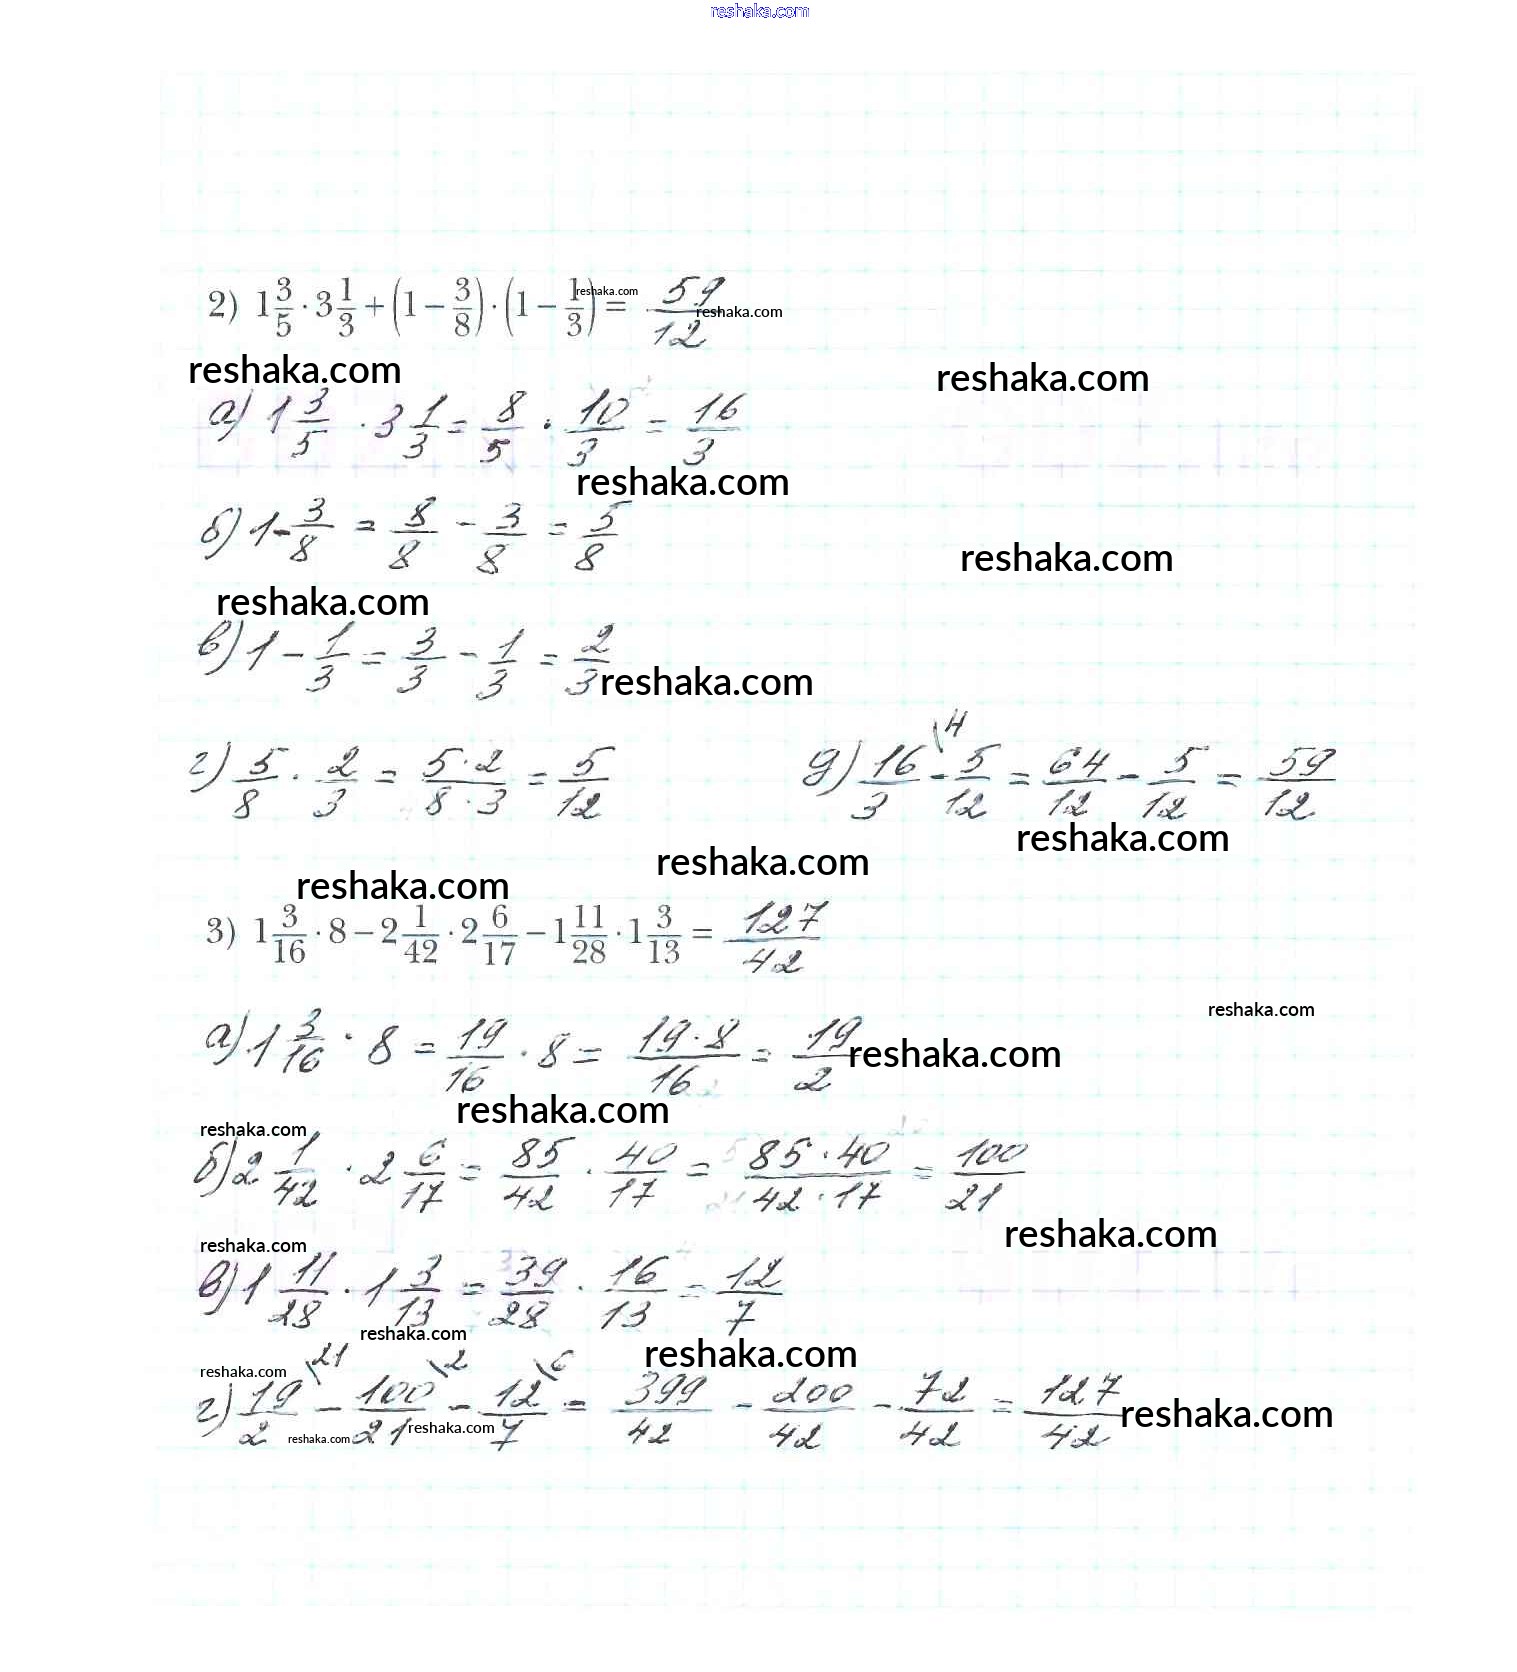 reshaka.com
2) 1 3/5 · 3 1/3 + (1 − 3/8) · (1 − 1/3) = 59/12
reshaka.com
reshaka.com
reshaka.com
reshaka.com
а) 1 3/5 · 3 1/3 = 8/5 · 10/3 = 16/3
reshaka.com
б) 1 - 3/8 = 8/8 - 3/8 = 5/8
reshaka.com
reshaka.com
в) 1 - 1/3 = 3/3 - 1/3 = 2/3
reshaka.com
г) 5/8 · 2/3 = 5·2/8·3 = 5/12
д) 16/3 \4 - 5/12 = 64/12 - 5/12 = 59/12
reshaka.com
reshaka.com
reshaka.com
3) 1 3/16 · 8 − 2 1/42 · 2 6/17 − 1 11/28 · 1 3/13 = 127/42
reshaka.com
а) 1 3/16 · 8 = 19/16 · 8 = 19·8/16 = 19/2
reshaka.com
reshaka.com
reshaka.com
б) 2 1/42 · 2 6/17 = 85/42 · 40/17 = 85·40/42·17 = 100/21
reshaka.com
reshaka.com
в) 1 11/28 · 1 3/13 = 39/28 · 16/13 = 12/7
reshaka.com
reshaka.com
reshaka.com
г) 19/2 \21 - 100/21 \2 - 12/7 \6 = 399/42 - 200/42 - 72/42 = 127/42
reshaka.com
reshaka.com
reshaka.com